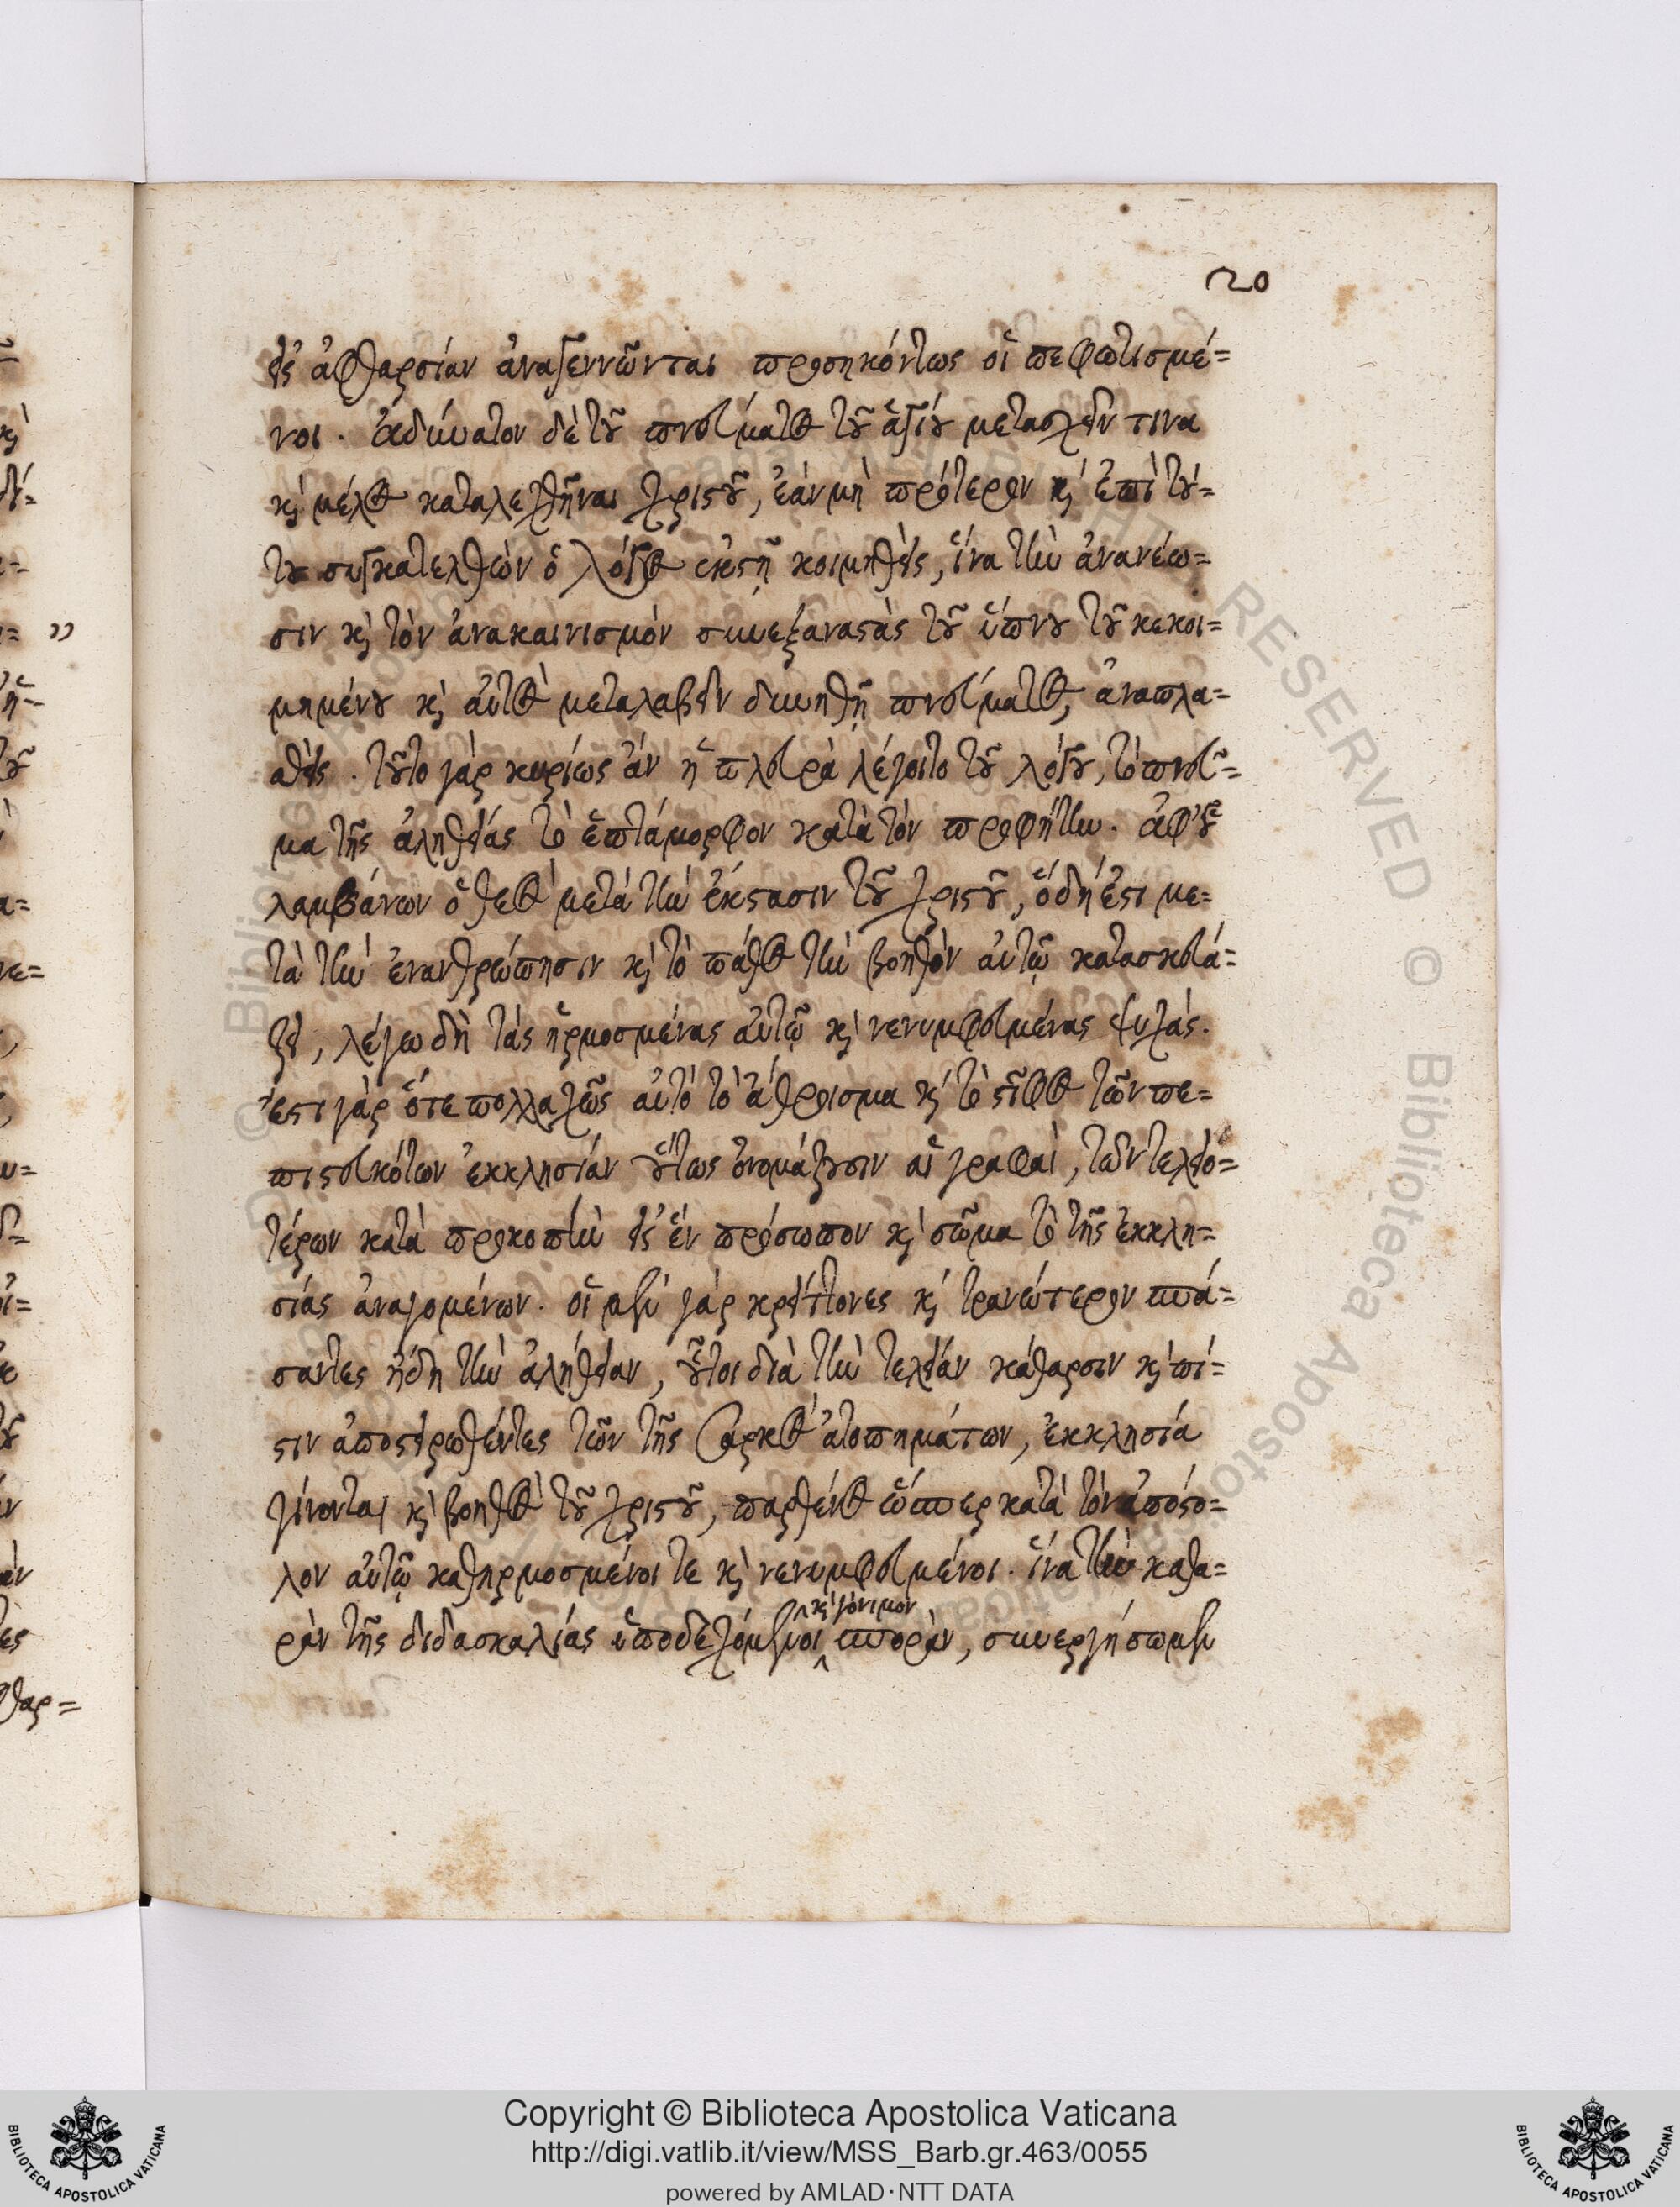 20
εἰς ἀφθαρσίαν ἀναγεννῶνται προσηκόντως οἱ πεφωτισμέ=
νοι. ἀδύνατον δὲ τοῦ πνεύματος τοῦ ἁγίου μετασχεῖν τινα
καὶ μέλος καταλεχθῆναι χριστοῦ, ἐὰν μὴ πρότερον καὶ ἐπὶ τού=
του συγκατελθὼν ὁ λόγος ἐκστῇ κοιμηθείς, ἵνα τὴν ἀνανέω=
σιν καὶ τὸν ἀνακαινισμὸν συνεξαναστὰς τοῦ ὕπνου τοῦ κεκοι=
μημένου καὶ αὐτὸς μεταλαβεῖν δυνηθῇ πνεύματος, ἀναπλα=
σθείς. τοῦτο γὰρ κυρίως ἂν ἡ πλευρὰ λέγοιτο τοῦ λόγου, τὸ πνεῦ=
μα τῆς ἀληθείας τὸ ἑπτάμορφον κατὰ τὸν προφήτην. ἀφ' οὗ
λαμβάνων ὁ θεὸς μετὰ τὴν ἔκστασιν τοῦ χριστοῦ, ὃ δή ἐστι με=
τὰ τὴν ἐνανθρώπησιν καὶ τὸ πάθος τὴν βοηθὸν αὐτῷ κατασκευά=
ζει, λέγω δὴ τὰς ἡρμοσμένας αὐτῷ καὶ νενυμφευμένας ψυχάς.
ἔστι γὰρ ὅτε πολλαχῶς αὐτὸ τὸ ἄθροισμα καὶ τὸ στῖφος τῶν πε=
πιστευκότων ἐκκλησίαν οὕτως ὀνομάζουσιν αἱ γραφαί, τῶν τελειο=
τέρων κατὰ προκοπὴν εἰς ἓν πρόσωπον καὶ σῶμα τὸ τῆς ἐκκλη=
σίας ἀναγομένων. οἱ μὲν γὰρ κρείττονες καὶ τρανώτερον σπά=
σαντες ἤδη τὴν ἀλήθειαν, οὗτοι διὰ τὴν τελείαν κάθαρσιν καὶ πί=
στιν ἀποστειρωθέντες τῶν τῆς σαρκὸς ἀτοπημάτων, ἐκκλησία
γίνονται καὶ βοηθὸς τοῦ χριστοῦ, παρθένος ὥσπερ κατὰ τὸν ἀπόστο=
λον αὐτῷ καθηρμοσμένοι τε καὶ νενυμφευμένοι. ἵνα τὴν καθα=
ρὰν τῆς διδασκαλίας ὑποδεχόμενοι ^καὶ γόνιμον σποράν, συνεργήσωμεν
Copyright © Biblioteca Apostolica Vaticana
http://digi.vatlib.it/view/MSS_Barb.gr.463/0055
powered by AMLAD·NTT DATA